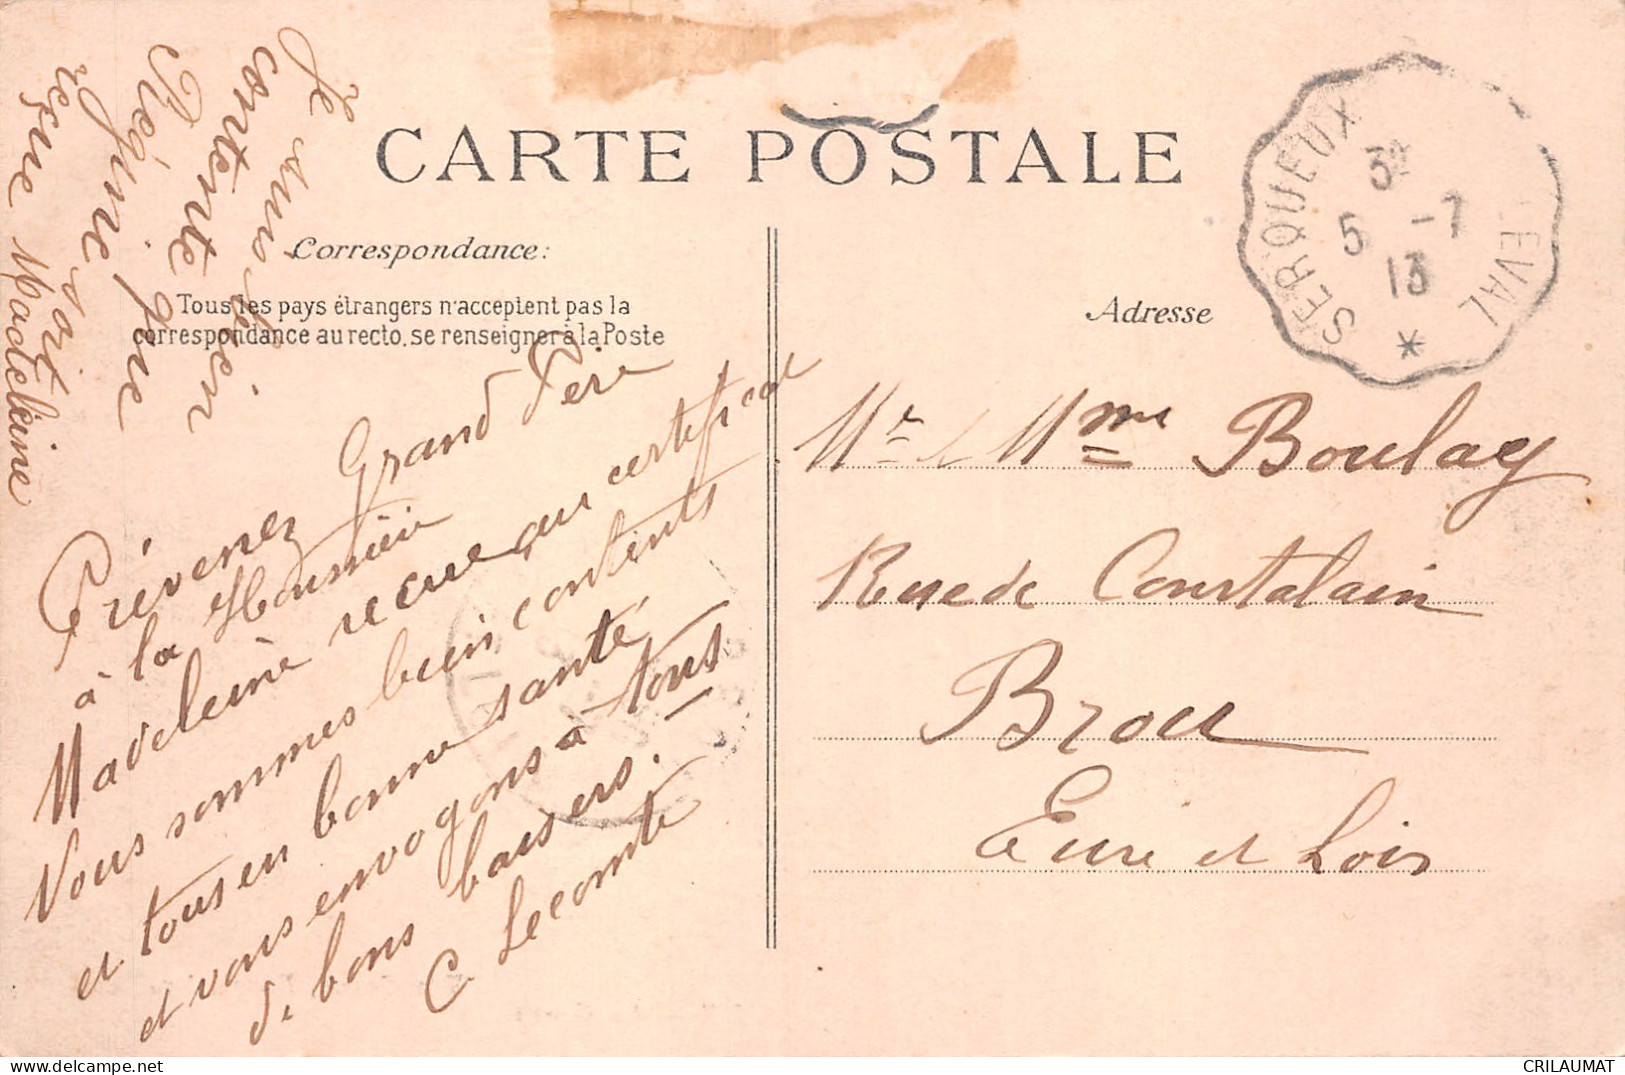 CARTE POSTALE
Correspondance:
Tous les pays étrangers n'acceptent pas la
correspondance au recto, se renseigner à la Poste
Adresse
SERQUEUX
EVAL
3e
5 -7
13
*
Je suis bien
contente
Régine que
Madeleine
reçue
Prévenez Grand Père
à la Houssiere
Madeleine recue au certificat
Nous sommes bien contents
et tous en bonne santé
et vous envoyons à tous
de bons baisers.
C Lecomte
Mr & Mme Boulay
Rue de Courtalain
Brou
Eure et Loir
CRILAUMAT